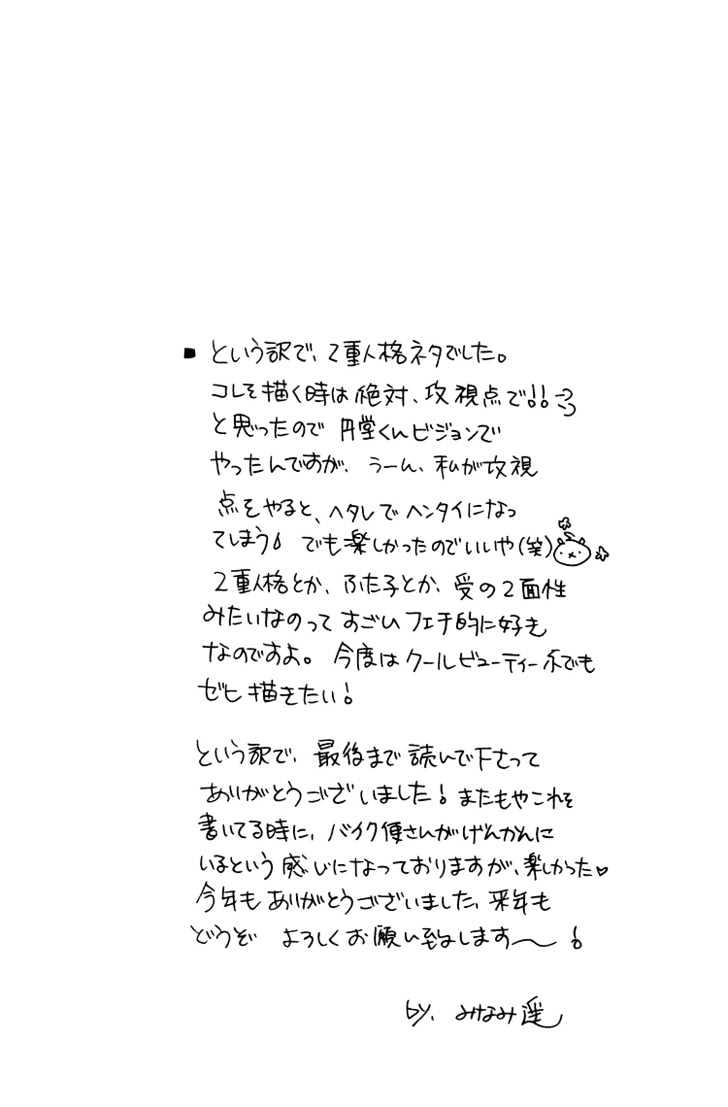 ■ という訳で、2重人格ネタでした。
コレを描く時は絶対、攻視点で!!
と思ったので 円堂くんビジョンで
やったんですが、うーん、私が攻視
点をやると、ヘタレでヘンタイになっ
てしまう! でも楽しかったのでいいや(笑)
2重人格とか、ふた子とか、受の2面性
みたいなのって すごいフェチ的に好き
なのですよ。 今度はクールビューティー系でも
ゼヒ描きたい!
という訳で、最後まで読んで下さって
ありがとうございました! またもやこれを
書いてる時に、バイク便さんがげんかんに
いるという感じになっておりますが、楽しかった♡
今年もありがとうございました、来年も
どうぞ よろしくお願い致します〜!
by. みなみ遥